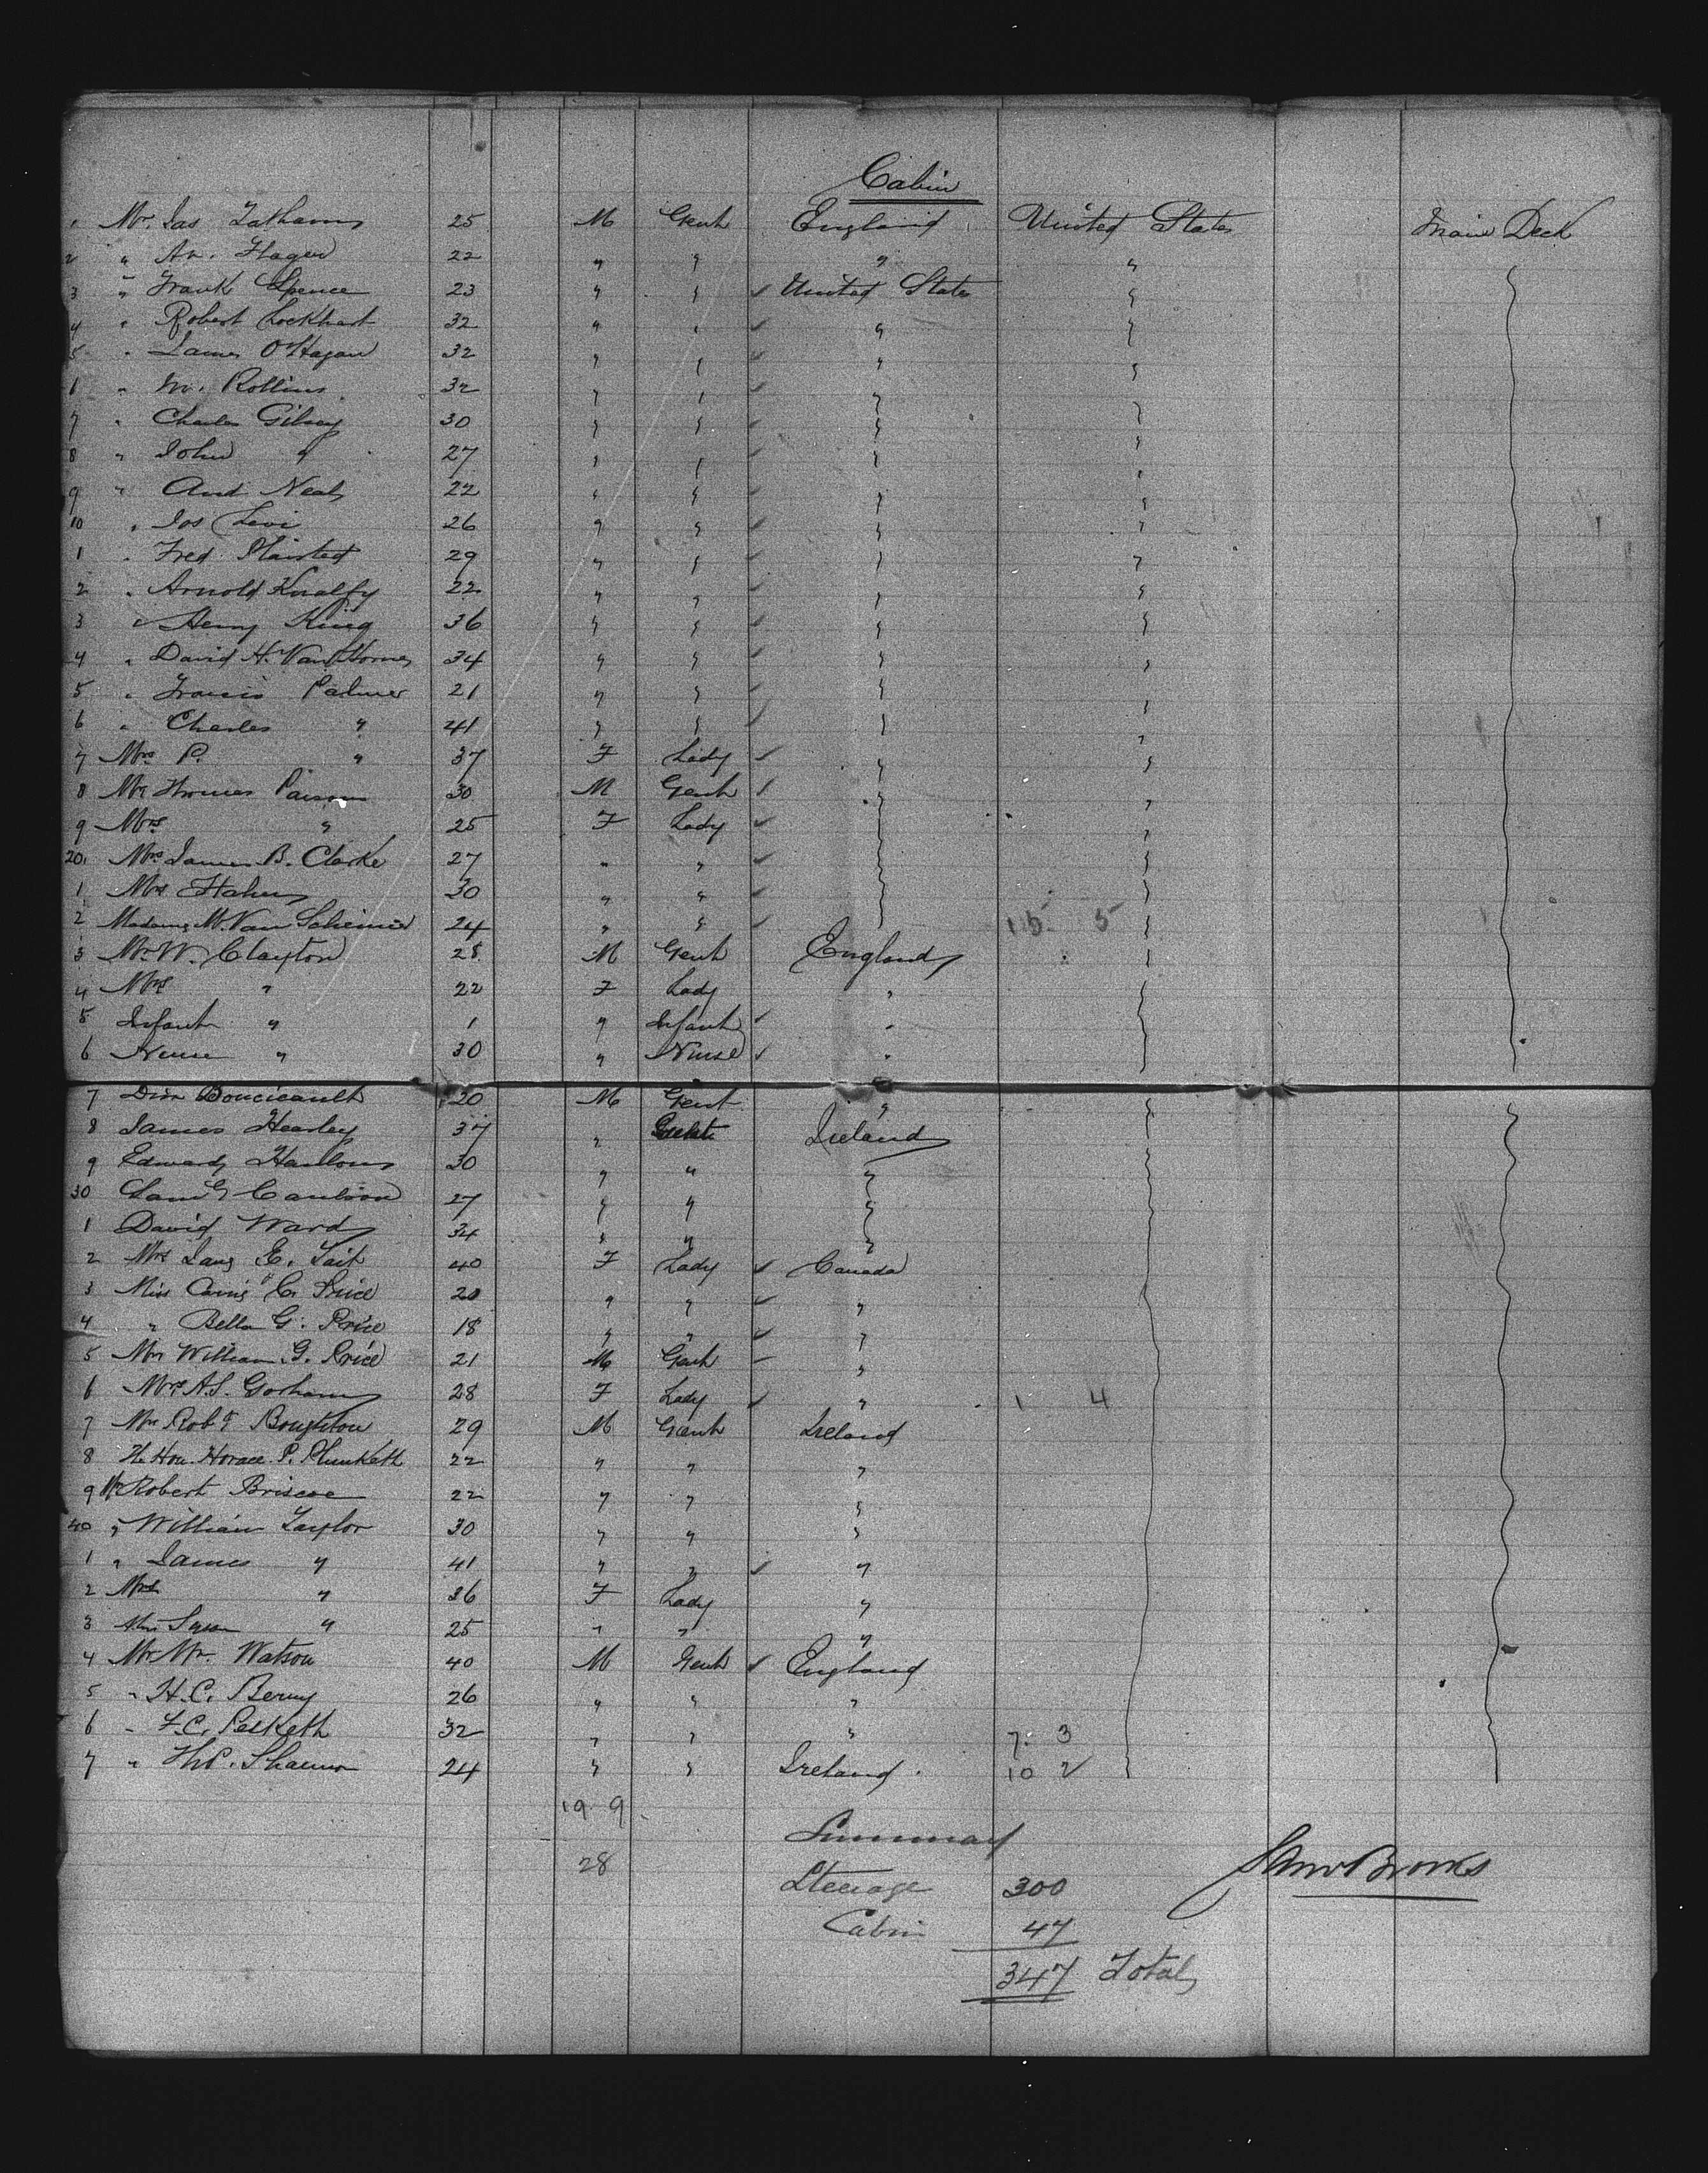 Cabin
1 Mr. Jas Latham 25 M Gent England United States Main Deck
2 " Ar. Hagen 22 " " " "
3 " Frank Spence 23 " " ✓ United States "
4 " Robert Lockhart 32 " " ✓ " "
5 " James O'Hagan 32 " " ✓ " "
6 " Wm. Rollins 32 " " ✓ " "
7 " Charles Gilsey 30 " " ✓ " "
8 " John " 27 " " ✓ " "
9 " And Neal 22 " " ✓ " "
10 " Jos Levi 26 " " ✓ " "
1 " Fred Plaisted 29 " " ✓ " "
2 " Arnold Kiralfy 22 " " ✓ " "
3 " Henry King 36 " " ✓ " "
4 " David H. Van Horne 34 " " ✓ " "
5 " Francis Palmer 21 " " ✓ " "
6 " Charles " 41 " " ✓ " "
7 Mrs P. " 37 F Lady ✓ " "
8 Mr Thomas 30 M Gent ✓ " "
9 Mrs " 25 F Lady ✓ " "
20 Mrs James B. Clarke 27 " " ✓ " "
1 Mrs 30 " " ✓ " "
2 Madame M. Van 24 " " ✓ " 15 5 "
3 Mr W. Clayton 28 M Gent England "
4 Mrs " 22 F Lady "
5 Infant " 1 " Infant ✓ "
6 Nurse " 30 " Nurse ✓ "
7 Dion Boucicault 20 M Gent " "
8 James Hearley 37 " Ireland
9 Edward Hanlon 30 " " "
30 27 " " "
1 David Ward 34 " " "
2 Mrs Jane E. Tait 40 F Lady ✓ Canada
3 Miss Annie C. Price 20 " " ✓ "
4 " Bella G. Price 18 " " ✓ "
5 Mr William G. Price 21 M Gent "
6 Mrs A.S. Gorham 28 F Lady ✓ " 1 4
7 Mr Robt Boughton 29 M Gent Ireland
8 The Hon. Horace P. Plunkett 22 " " "
9 Mr Robert Briscoe 22 " " "
40 " William Taylor 30 " " "
1 " James " 41 " " ✓ "
2 Mrs " 36 F Lady "
3 Miss Susan " 25 " " "
4 Mr Wm. Watson 40 M Gent ✓ England
5 " H.C. Berry 26 " " "
6 " F.C. Pesketh 32 " " " 7 3
7 " Thos. Shannon 24 " " Ireland 10 2
19 9
Summary
28
Steerage 300
Cabin 47
347 Total